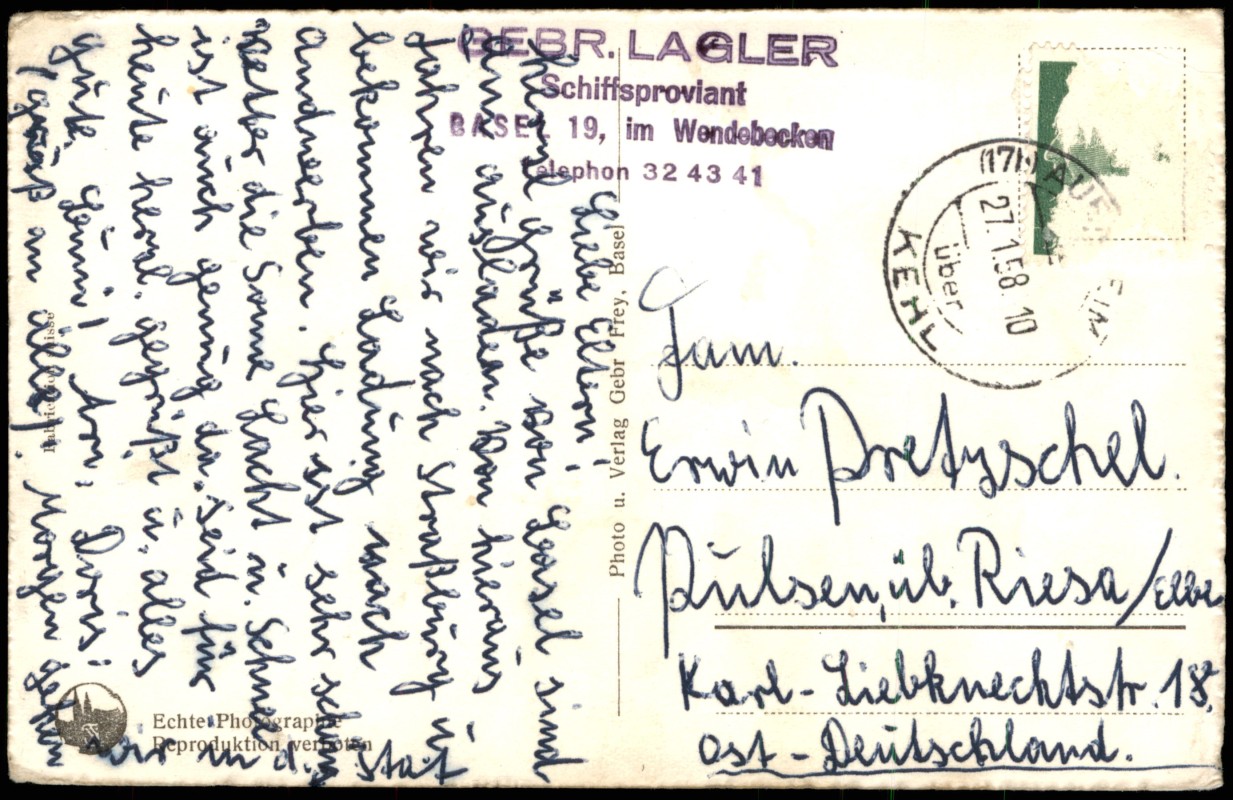 GEBR. LAGLER
Schiffsproviant
BASEL 19, im Wendebecken
Telephon 32 43 41
Liebe Eltern!
Grüße von Basel sind
ausladen. Von hieraus
fahren wir nach Straßburg u.
bekommen Ladung nach
Andwerben. Hier ist sehr schön
Wetter die Sonne Lacht u. Schnee
ist auch genug da. Seid für
heute herzl. gegrüßt u. alles
gute. Doris!
(gruß an alle). Morgen gehen
wir in d. Stat
Fabrication Suisse
Echte Photographie
Reproduktion verboten
Photo u. Verlag Gebr Frey, Basel
(17b) AUE
über
KEHL
27.1.58. 10
Fam.
Erwin Pretzschel.
Pülsen, üb. Riesa/Elbe
Karl-Liebknechtstr. 18.
Ost-Deutschland.